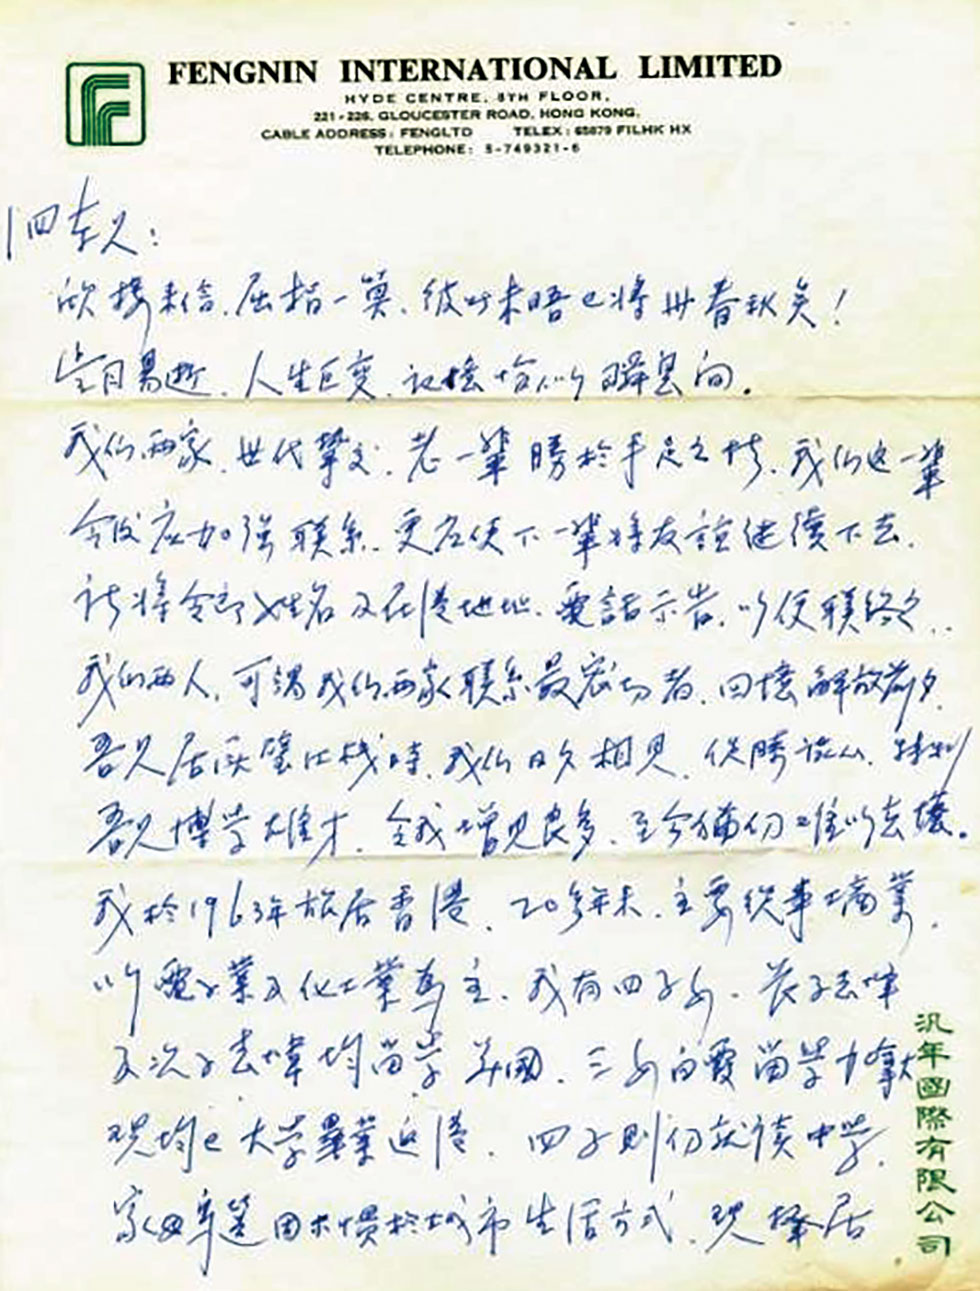 FENGNIN INTERNATIONAL LIMITED
HYDE CENTRE, 8TH FLOOR,
221-226, GLOUCESTER ROAD, HONG KONG.
CABLE ADDRESS: FENGLTD TELEX: 65879 FILHK HX
TELEPHONE: 5-749321-6
欣接来信、屈指一算、彼此未晤已将卅春秋矣！
岁月易逝、人生巨变、记忆恰似瞬息间。
我们两家、世代挚交、老一辈勝於手足之情、我们这一辈
今后应加强联系、更应使下一辈将友誼继续下去、
请将令郎姓名及在港地址、電話示告、以便联络之、
我们两人、可谓我们两家联系最密切者、回憶解放前夕、
吾兄居 時、我们日夕相見、
吾兄博学雄才、令我增見良多、至今 仍难以忘懷。
我於1963年旅居香港、20多年来、主要從事商業、
以電子業及化工業為主、我有四子女、长子志
及次子志偉均留学美國、三女 霞留学加拿大
现均已大学畢業返港、四子则仍就读中学、
家母年 因不惯於城市生活方式、现择居
汎年國際有限公司